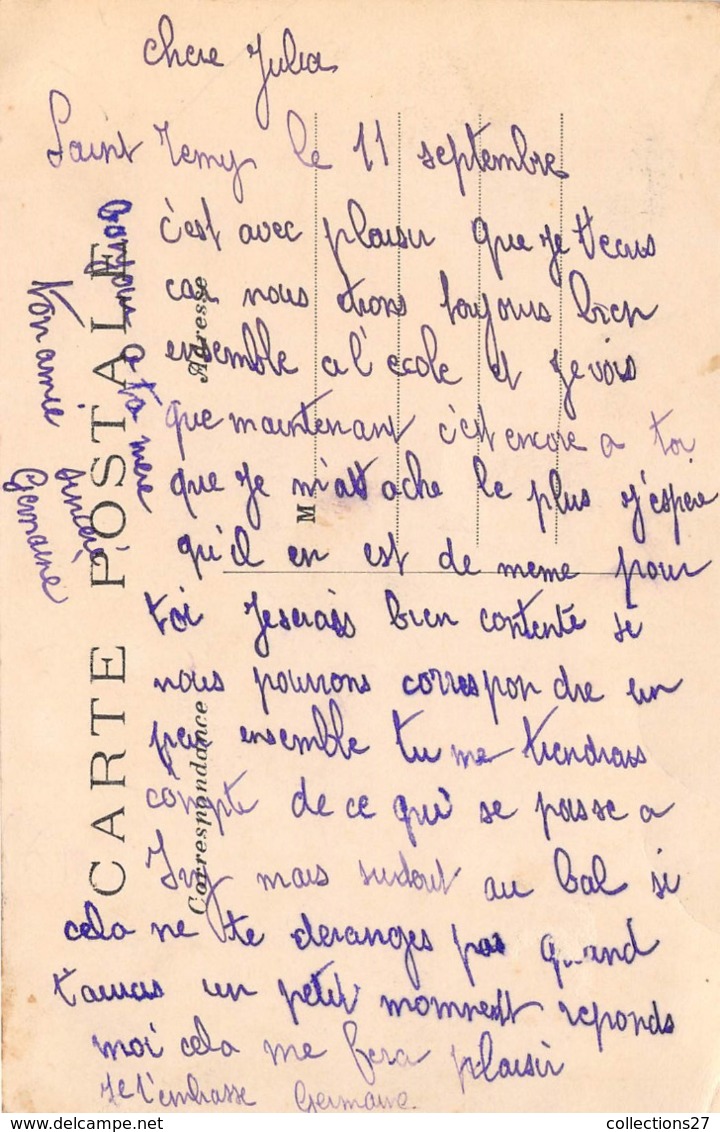 chere Julia
Saint Remy le 11 septembre
c'est avec plaisir que je t'ecris
car nous etions toujours bien
ensemble a l'ecole et je vois
que maintenant c'est encore a toi
que je m'attache le plus j'espere
qu'il en est de meme pour
toi je serais bien contente si
nous pourrons correspondre un
peu ensemble tu me tiendrais
compte de ce qui se passe a
Ivry mais surtout au bal si
cela ne te deranges pas quand
tauras un petit momment reponds
moi cela me fera plaisir
Je t'embrasse Germaine
a ta mere
Ton amie sincère
Germaine
CARTE POSTALE
Correspondance
Adresse
M
collections27